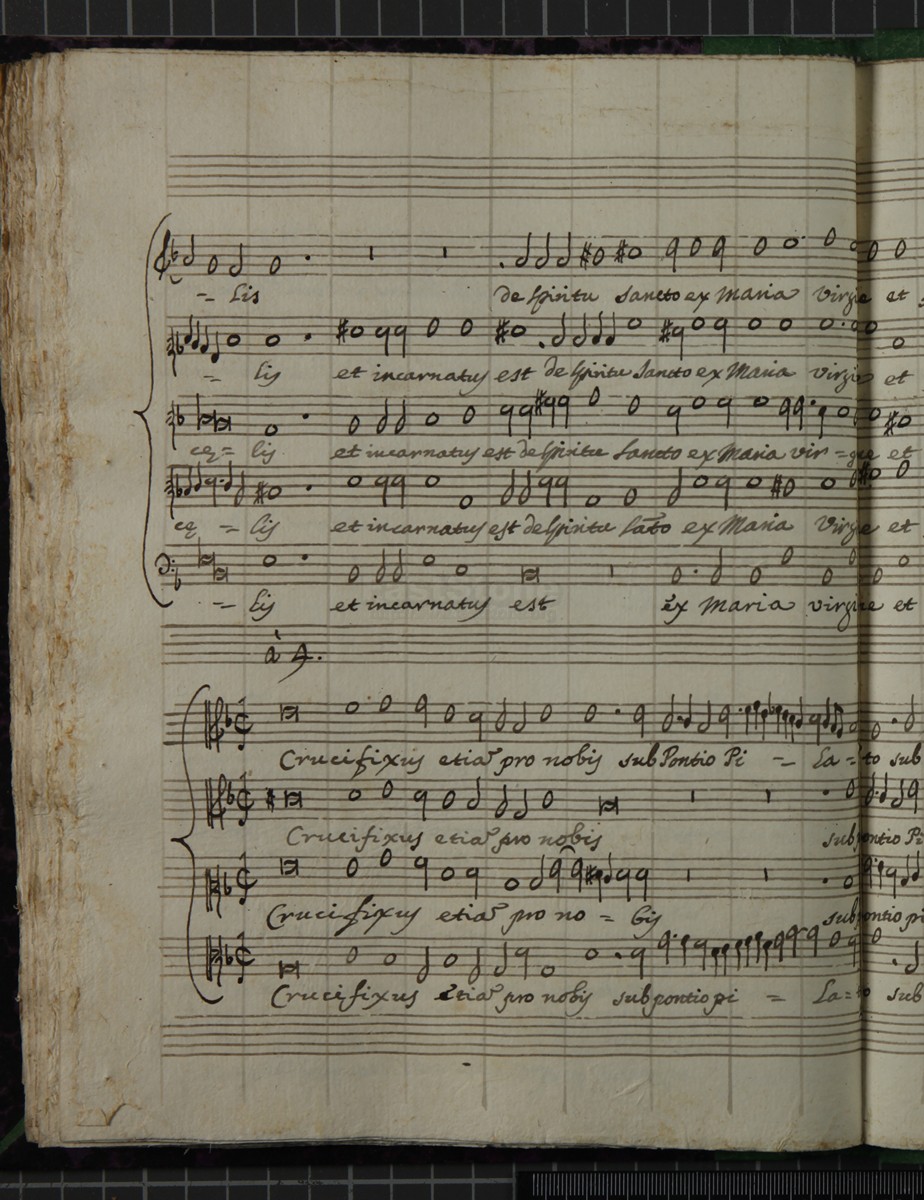 = lis de spiritu sancto ex Maria virgie et
= lis et incarnatus est de spiritu sancto ex Maria virgie et
cę = lis et incarnatus est de spiritu sancto ex Maria vir = gie et
cę = lis et incarnatus est de spiritu sāto ex Maria virgie et
= lis et incarnatus est ex Maria virgie et
à 4.
Crucifixus etia~ pro nobis sub Pontio Pi = la = to sub
Crucifixus etia~ pro nobis sub pontio Pi
Crucifixus etia~ pro no = bis sub pontio pi
Crucifixus etia~ pro nobis sub pontio pi = la = to sub